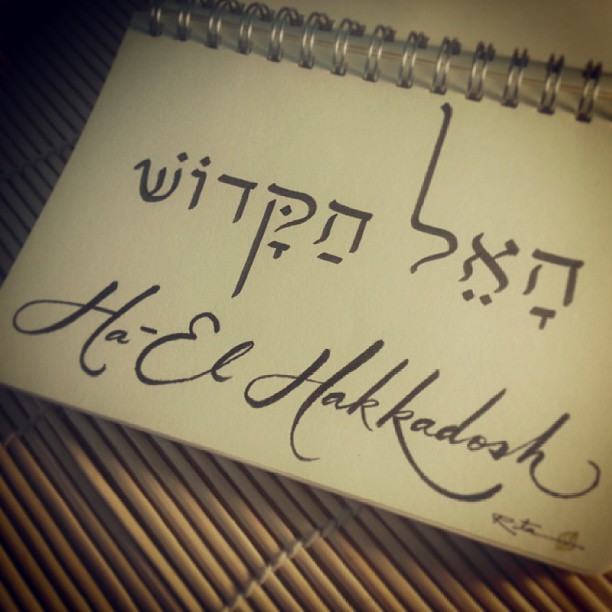 הָאֵל הַקָּדוֹשׁ
Ha-El Hakkadosh
Rita